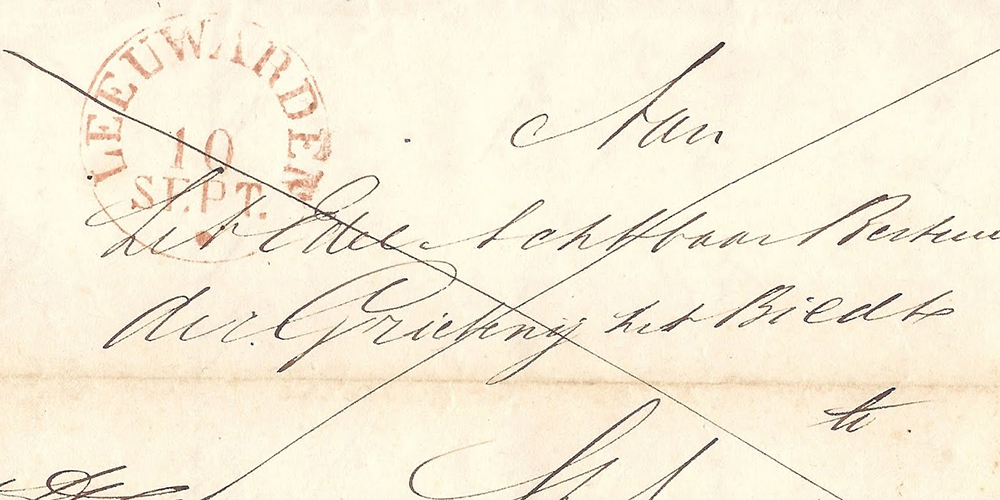 LEEUWARDEN
10
SEPT.
Aan
het Edel Achtbaar Bestuu
der Grietenij het Bildt
te